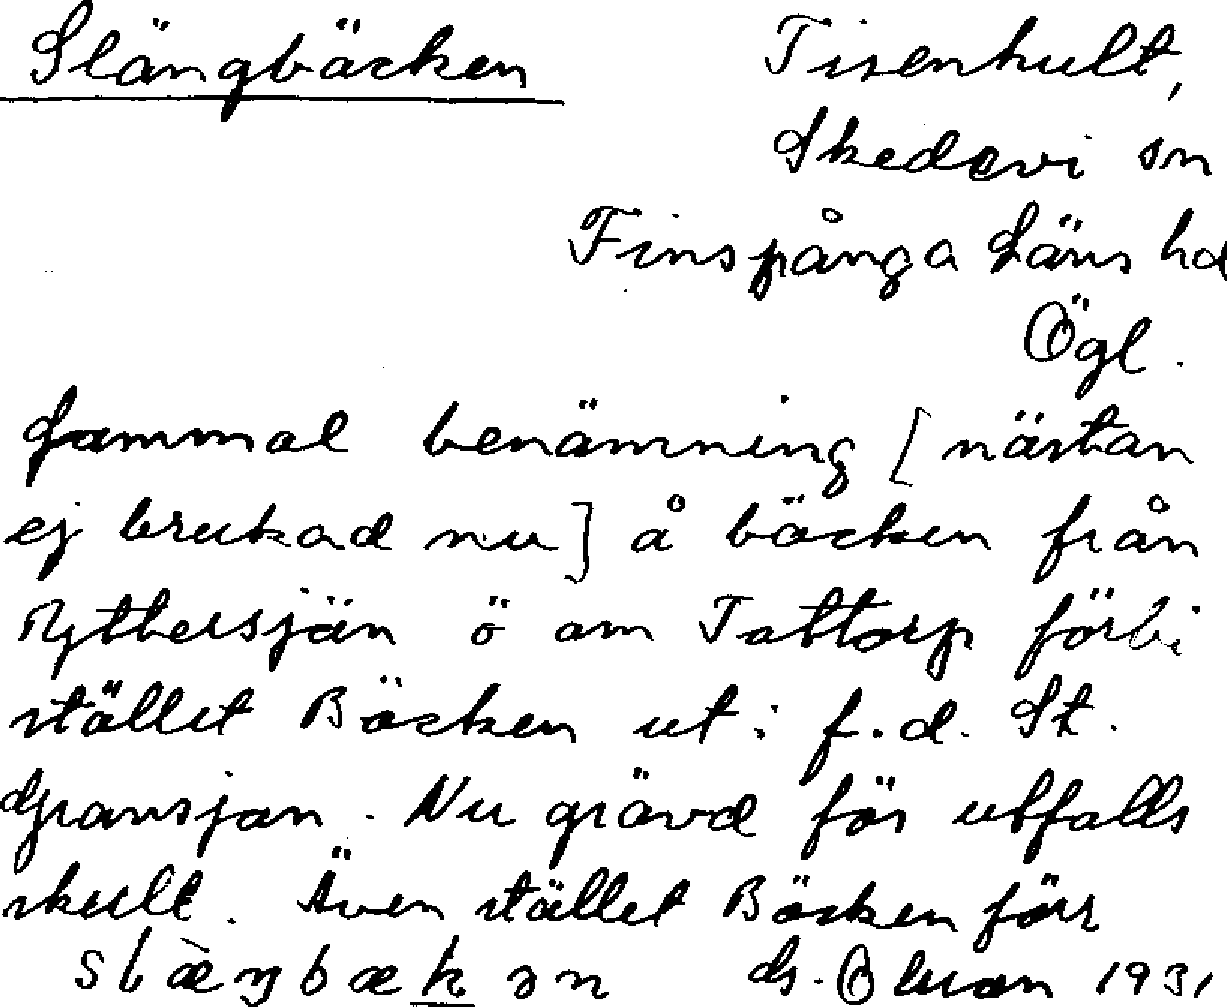 Slängbäcken Tisenhult,
Skedevi sn
Finspånga Läns hd
Ögl.
Gammal benämning [nästan
ej brukad nu] å bäcken från
ö om Tottorp förbi
stället Bäcken ut i f.d. St.
Gransjön. Nu grävd för utfalls
skull. Även stället Bäcken förr
G. 1931